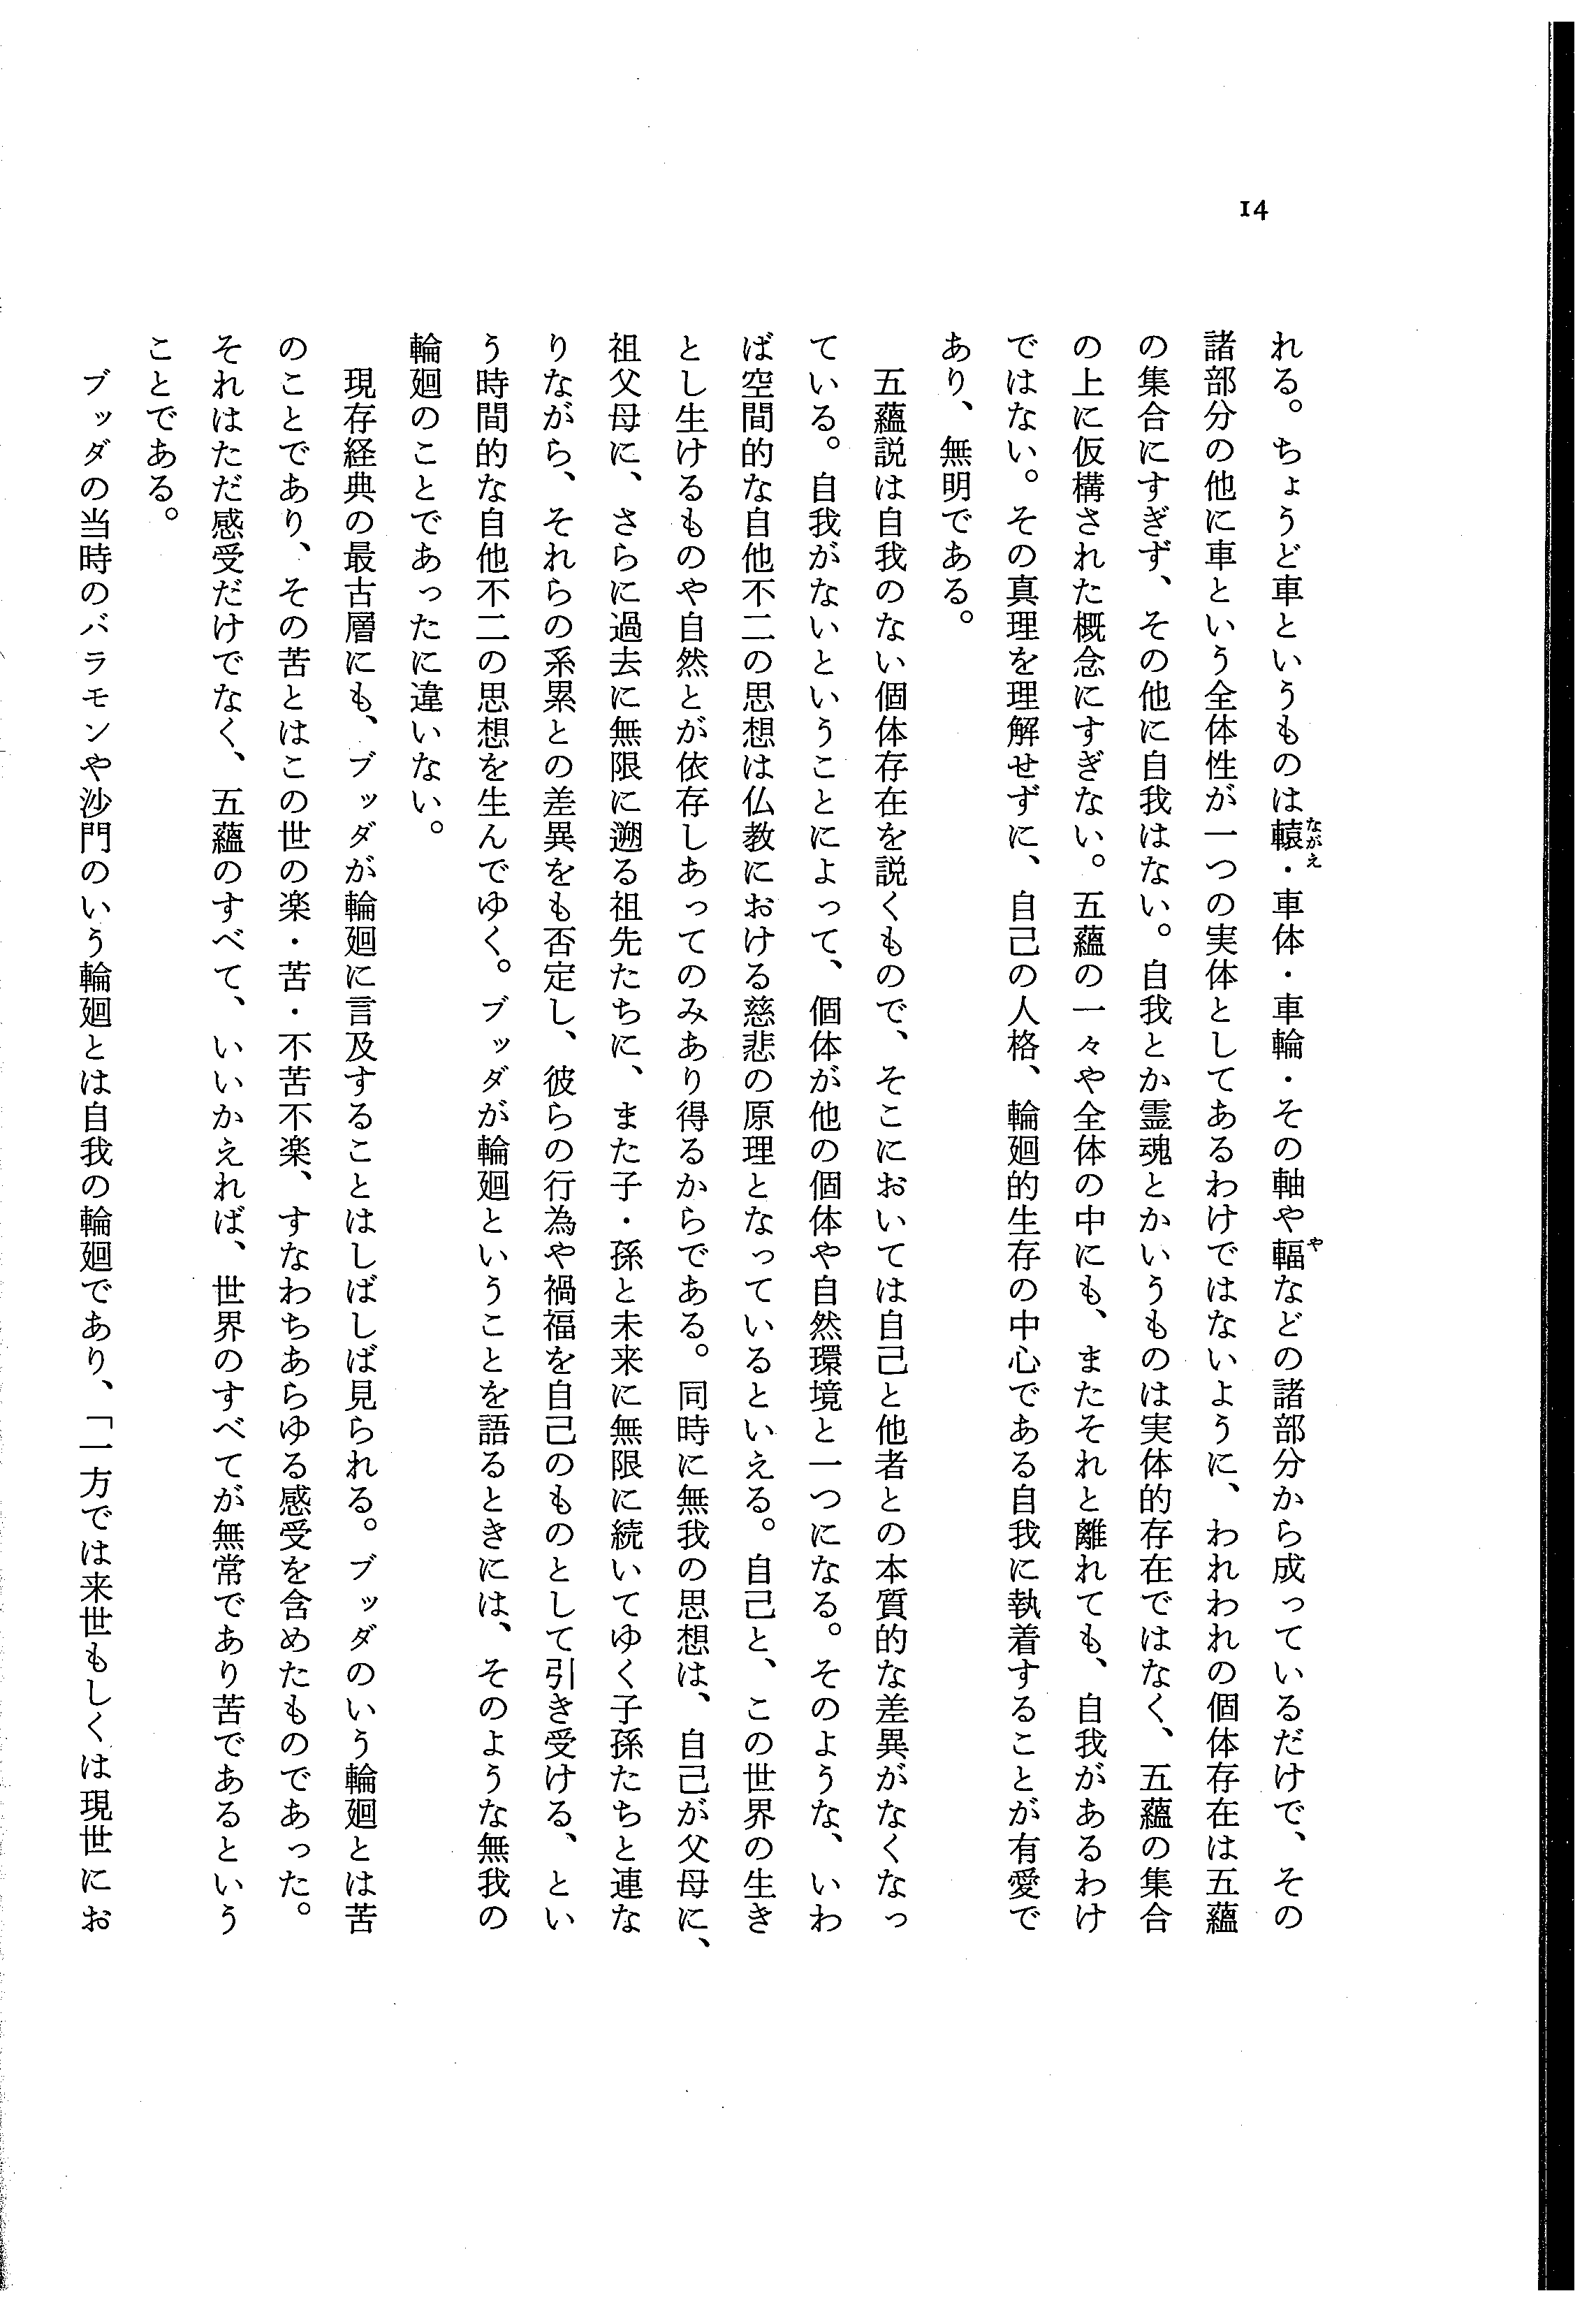 14
れる。ちょうど車というものは轅・車体・車輪・その軸や輻などの諸部分から成っているだけで、その
ながえ
や
諸部分の他に車という全体性が一つの実体としてあるわけではないように、われわれの個体存在は五蘊
の集合にすぎず、その他に自我はない。自我とか霊魂とかいうものは実体的存在ではなく、五蘊の集合
の上に仮構された概念にすぎない。五蘊の一々や全体の中にも、またそれと離れても、自我があるわけ
ではない。その真理を理解せずに、自己の人格、輪廻的生存の中心である自我に執着することが有愛で
あり、無明である。
五蘊説は自我のない個体存在を説くもので、そこにおいては自己と他者との本質的な差異がなくなっ
ている。自我がないということによって、個体が他の個体や自然環境と一つになる。そのような、いわ
ば空間的な自他不二の思想は仏教における慈悲の原理となっているといえる。自己と、この世界の生き
とし生けるものや自然とが依存しあってのみあり得るからである。同時に無我の思想は、自己が父母に、
祖父母に、さらに過去に無限に遡る祖先たちに、また子・孫と未来に無限に続いてゆく子孫たちと連な
りながら、それらの系累との差異をも否定し、彼らの行為や禍福を自己のものとして引き受ける、とい
う時間的な自他不二の思想を生んでゆく。ブッダが輪廻ということを語るときには、そのような無我の
輪廻のことであったに違いない。
現存経典の最古層にも、ブッダが輪廻に言及することはしばしば見られる。ブッダのいう輪廻とは苦
のことであり、その苦とはこの世の楽・苦・不苦不楽、すなわちあらゆる感受を含めたものであった。
それはただ感受だけでなく、五蘊のすべて、いいかえれば、世界のすべてが無常であり苦であるという
ことである。
ブッダの当時のバラモンや沙門のいう輪廻とは自我の輪廻であり、「一方では来世もしくは現世にお